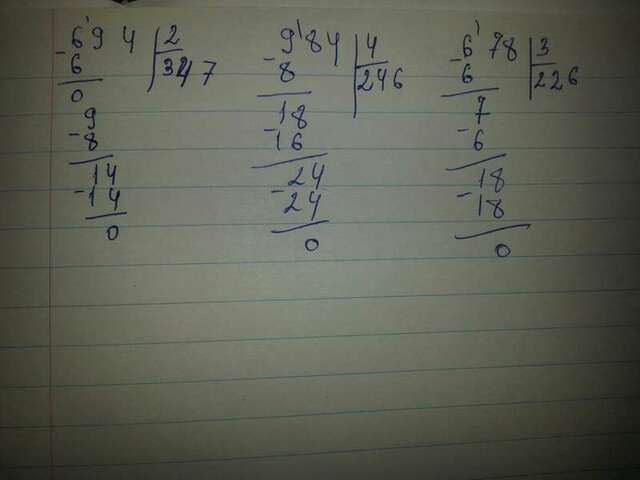 6'94 2 9'84 4 6'78 3
-6 347 -8 246 -6 226
0 18 7
9 -16 -6
-8 24 18
14 -24 -18
-14 0 0
0